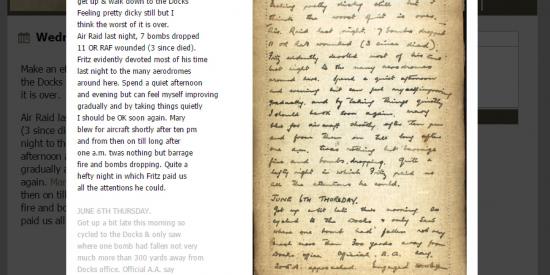 get up & walk down to the Docks
Feeling pretty dicky still but I
think the worst of it is over.
Air Raid last night, 7 bombs dropped
11 OR RAF wounded (3 since died).
Fritz evidently devoted most of his time
last night to the many aerodromes
around here. Spend a quiet afternoon
and evening but can feel myself improving
gradually and by taking things quietly
I should be OK soon again. Mary
blew for aircraft shortly after ten pm
and from then on till long after
one a.m. twas nothing but barrage
fire and bombs dropping. Quite a
hefty night in which Fritz paid us
all the attentions he could.
JUNE 6TH THURSDAY.
Got up a bit late this morning so
cycled to the Docks & only saw
where one bomb had fallen not very
much more than 300 yards away from
Docks office. Official A.A. say
feeling pretty dicky still but I
think the worst of it is over.
Air Raid last night 7 bombs dropped
11 OR RAF wounded (3 since died).
Fritz evidently devoted most of his time
last night to the many aerodromes
around here. Spend a quiet afternoon
and evening but can feel myself improving
gradually, and by taking things quietly
I should be OK soon again. Mary
blew for aircraft shortly after ten pm
and from then on till long after
one a.m. twas nothing but barrage
fire and bombs dropping. Quite a
hefty night in which Fritz paid us
all the attentions he could.
JUNE 6TH THURSDAY.
Got up a bit late this morning so
cycled to the Docks & only saw
where one bomb had fallen not very
much more than 300 yards away from
Docks office. Official A.A. say
Wedn
Make an ef
the Docks
it is over.
Air Raid las
(3 since di
night to th
afternoon a
gradually a
again. Mar
then on till
fire and bo
paid us all